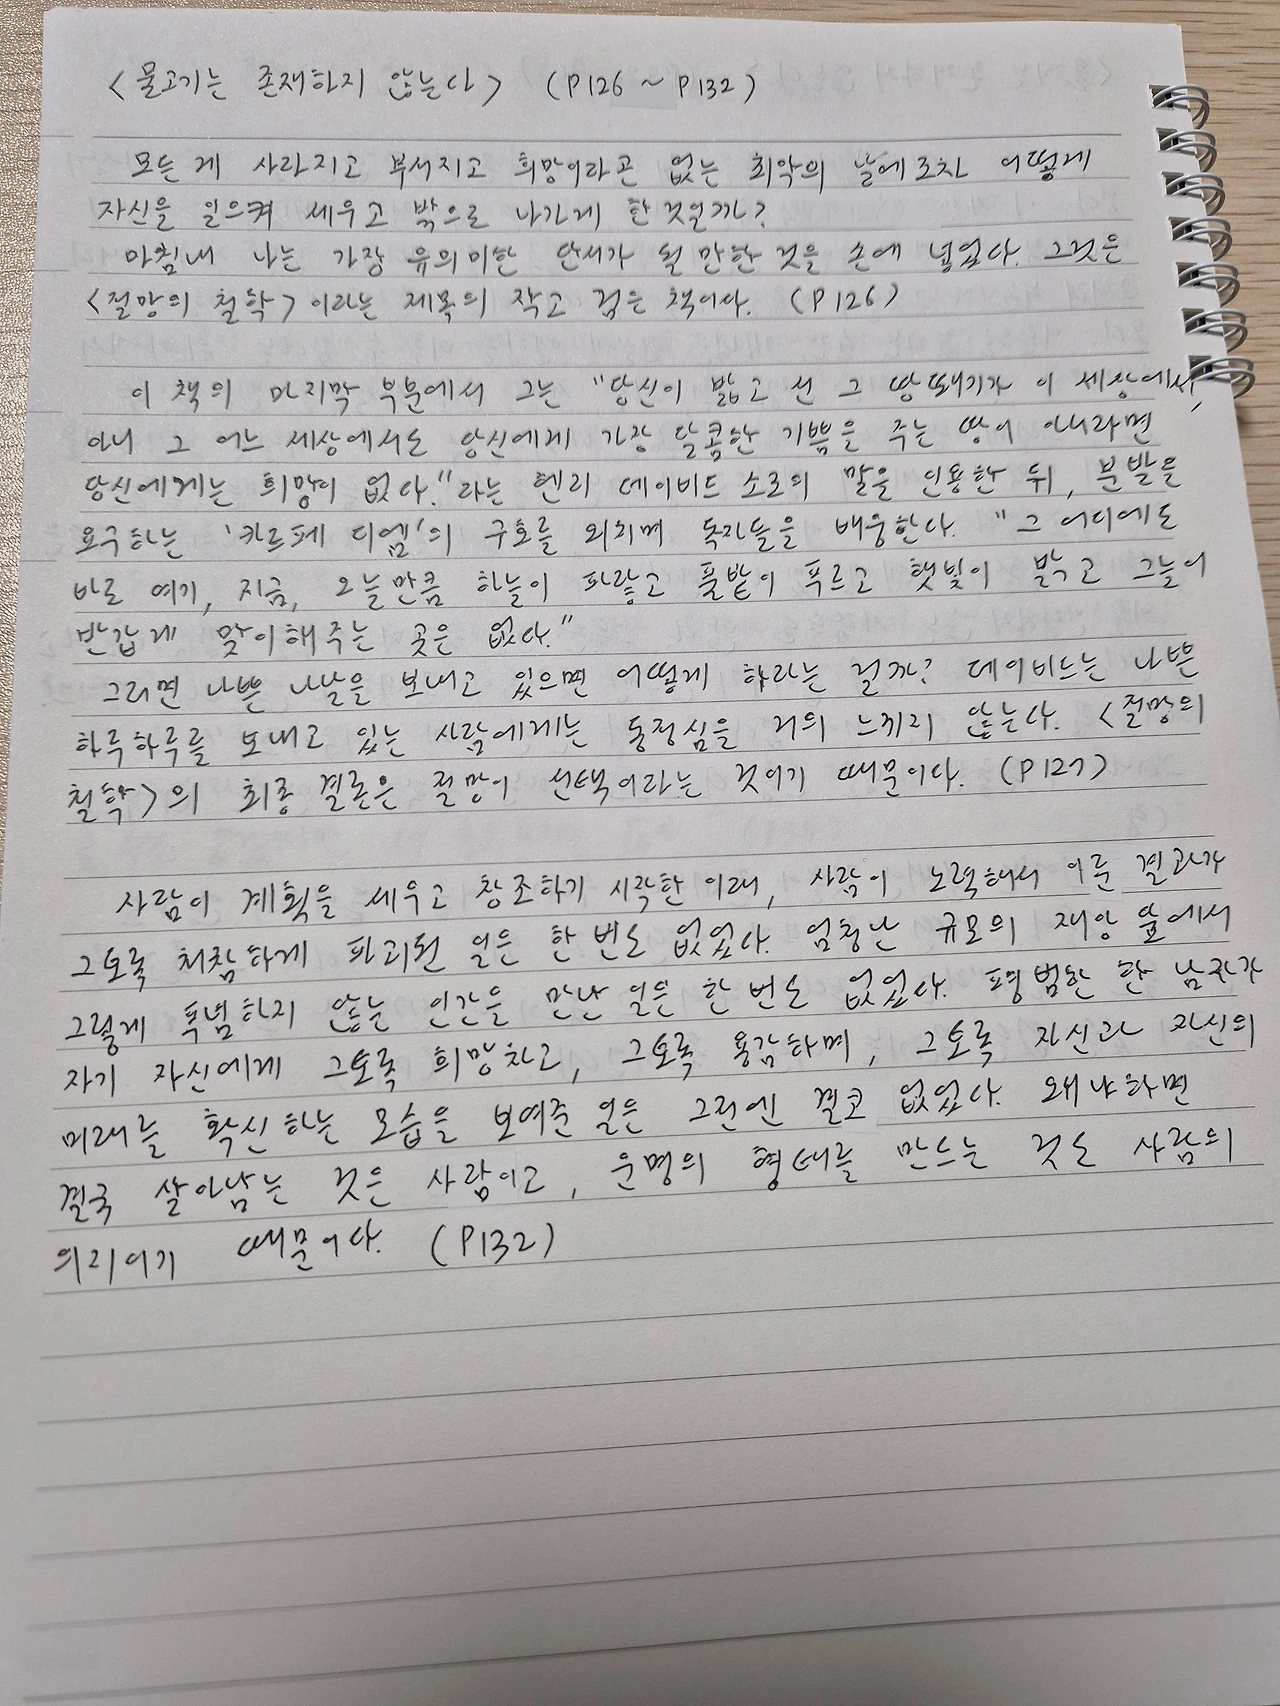 <물고기는 존재하지 않는다> (P126 ~ P132)
모든 게 사라지고 부서지고 희망이라곤 없는 최악의 날에조차 어떻게
자신을 일으켜 세우고 밖으로 나가게 한 것일까?
마침내 나는 가장 유의미한 단서가 될 만한 것을 손에 넣었다. 그것은
<절망의 철학>이라는 제목의 작고 검은 책이다. (P126)
이 책의 마지막 부분에서 그는 "당신이 밟고 선 그 땅뙈기가 이 세상에서,
아니 그 어느 세상에서도 당신에게 가장 달콤한 기쁨을 주는 땅이 아니라면
당신에게는 희망이 없다."라는 헨리 데이비드 소로의 말을 인용한 뒤, 분발을
요구하는 '카르페 디엠'의 구호를 외치며 독자들을 배웅한다. "그 어디에도
바로 여기, 지금, 오늘만큼 하늘이 파랗고 풀밭이 푸르고 햇빛이 밝고 그늘이
반갑게 맞이해주는 곳은 없다."
그러면 나쁜 나날을 보내고 있으면 어떻게 하라는 걸까? 데이비드는 나쁜
하루하루를 보내고 있는 사람에게는 동정심을 거의 느끼지 않는다. <절망의
철학>의 최종 결론은 절망이 선택이라는 것이기 때문이다. (P127)
사람이 계획을 세우고 창조하기 시작한 이래, 사람이 노력해서 이룬 결과가
그토록 처참하게 파괴된 일은 한 번도 없었다. 엄청난 규모의 재앙 앞에서
그렇게 푹념하지 않는 인간을 만난 일은 한 번도 없었다. 평범한 한 남자가
자기 자신에게 그토록 희망차고, 그토록 용감하며, 그토록 자신과 자신의
미래를 확신하는 모습을 보여준 일은 그런엔 결코 없었다. 왜냐하면
결국 살아남는 것은 사람이고, 운명의 형태를 만드는 것도 사람의
의지이기 때문이다. (P132)